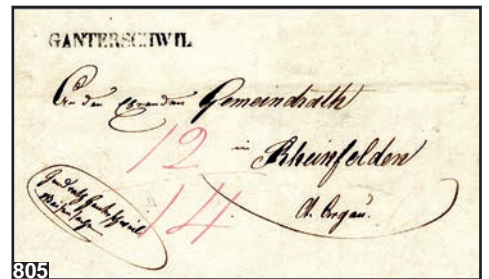 GANTERSCHWIL
An den Gemeindrath
12 in Rheinfelden
14. Ct. Argau.
805